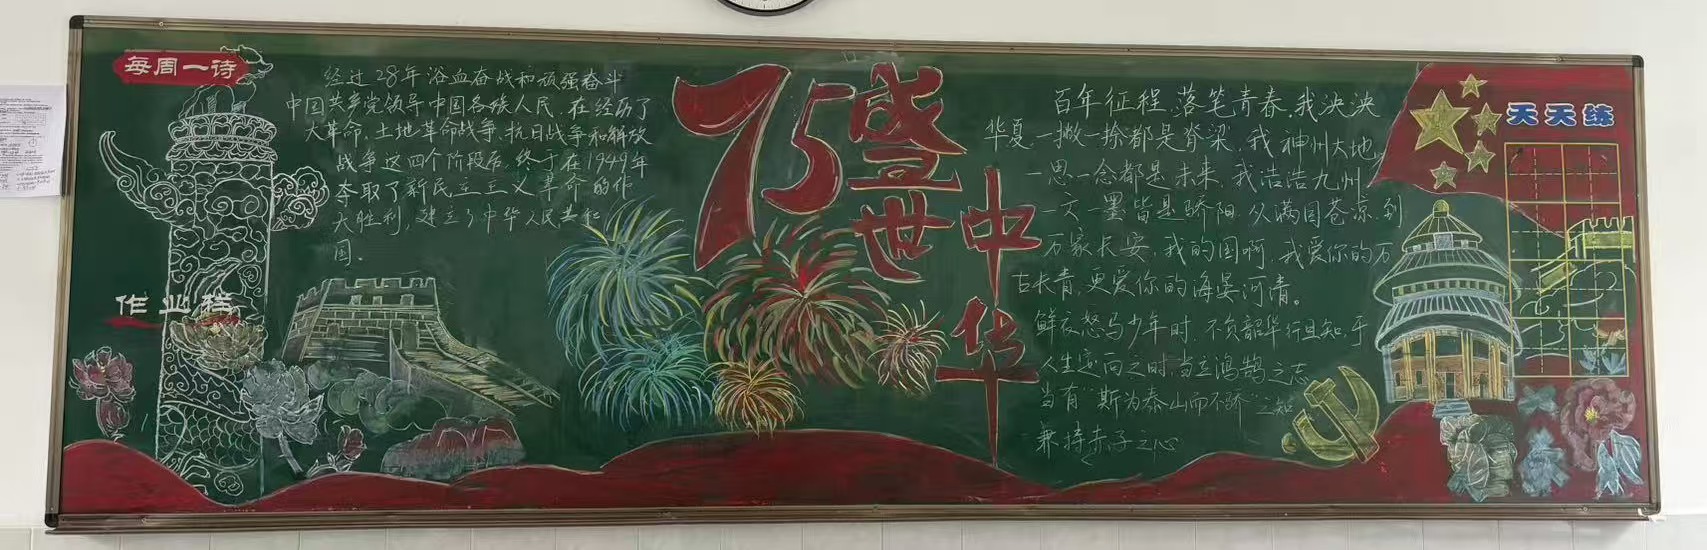 每周一诗
经过28年浴血奋战和顽强奋斗
中国共产党领导中国各族人民,在经历了
大革命,土地革命战争,抗日战争和解放
战争这四个阶段后,终于在1949年
夺取了新民主主义革命的伟
大胜利,建立了中华人民共和
国。
作业栏
75
盛世
中华
百年征程,落笔青春,我泱泱
华夏,一撇一捺都是脊梁,我神州大地,
一思一念都是未来,我浩浩九州,
一文一墨皆是骄阳,从满目苍凉,到
万家长安,我的国啊,我爱你的万
古长青,更爱你的海晏河清。
鲜衣怒马少年时,不负韶华行且知,于
人生 而之时,当立鸿鹄之志
当有"斯为泰山而不骄"之
兼持赤子之心
天天练